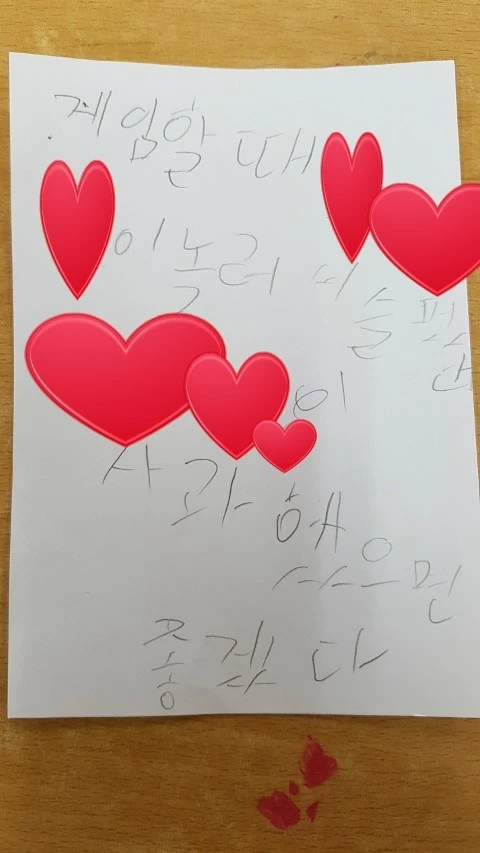 게임할 때
이 놀려서 슬펐다
이
사과했으면
좋겠다